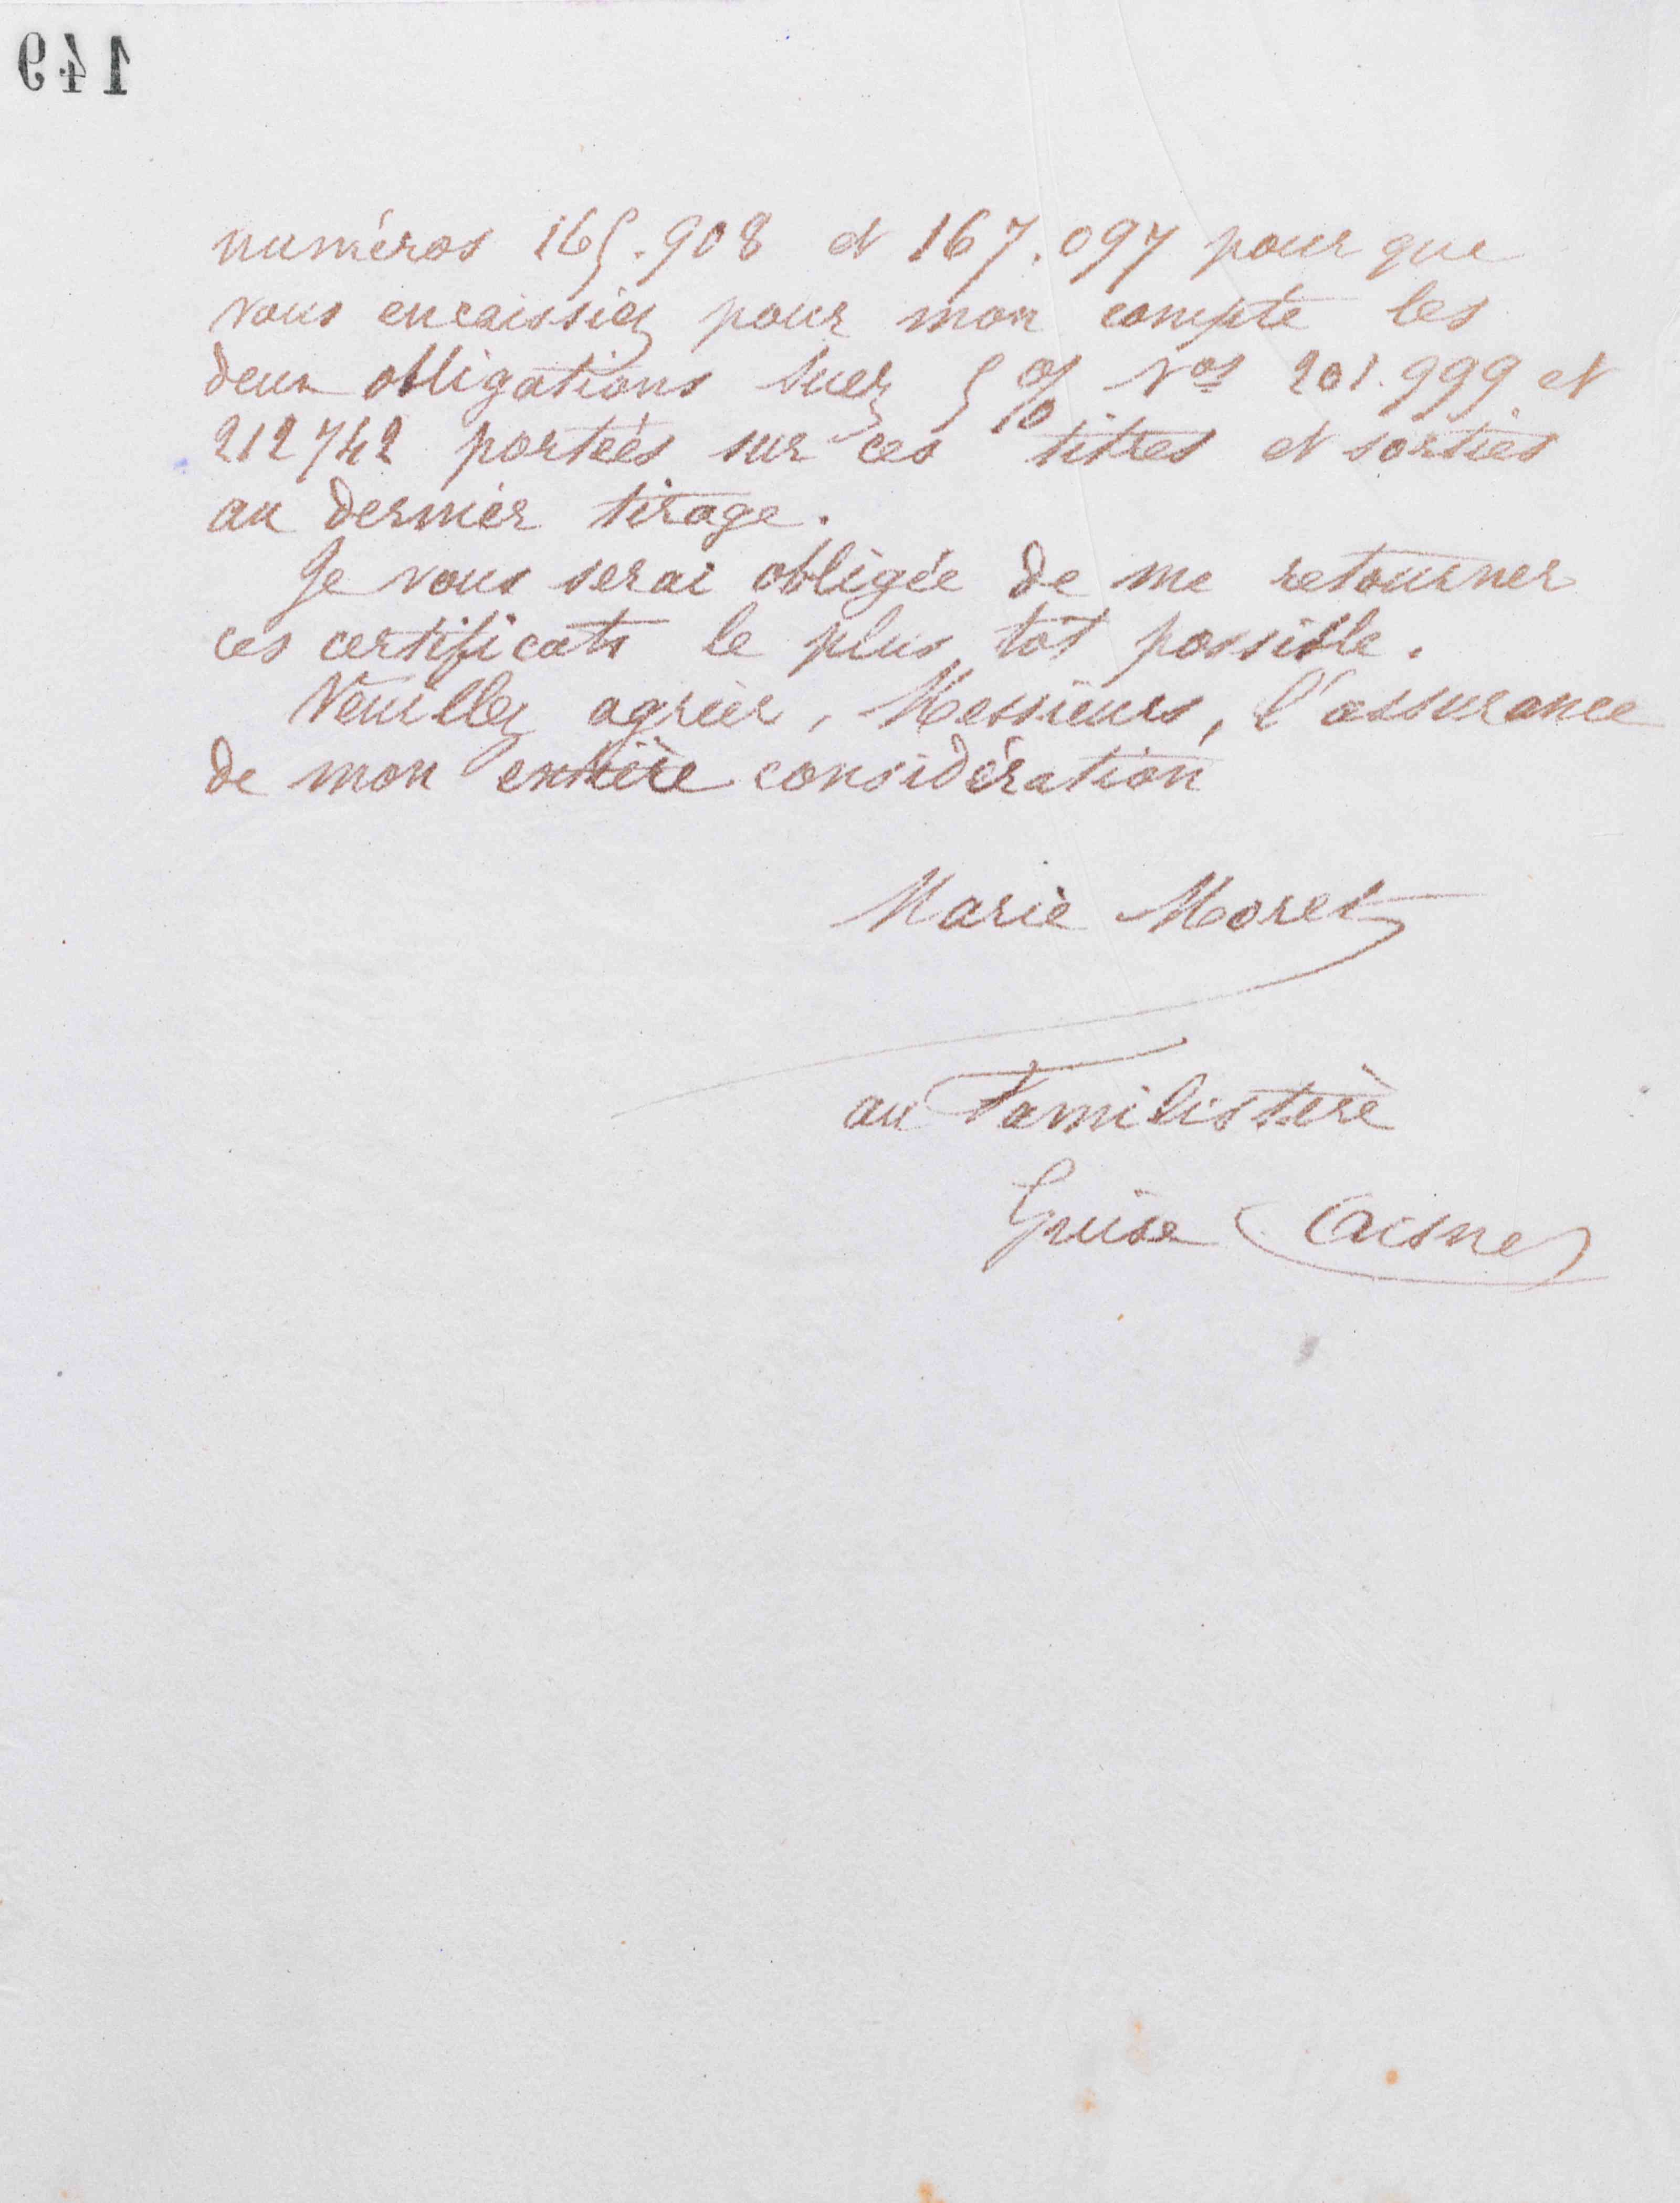 149
numéros 165.908 et 167.097 pour que
vous encaissiez pour mon compte les
deux obligations Suez 5 % Nos 201.999 et
212742 portées sur ces titres et sorties
au dernier tirage.
Je vous serai obligée de me retourner
ces certificats le plus tôt possible.
Veuillez agréer, Messieurs, l'assurance
de mon entière considération
Marie Moret
au Familistère
Guise (Aisne)